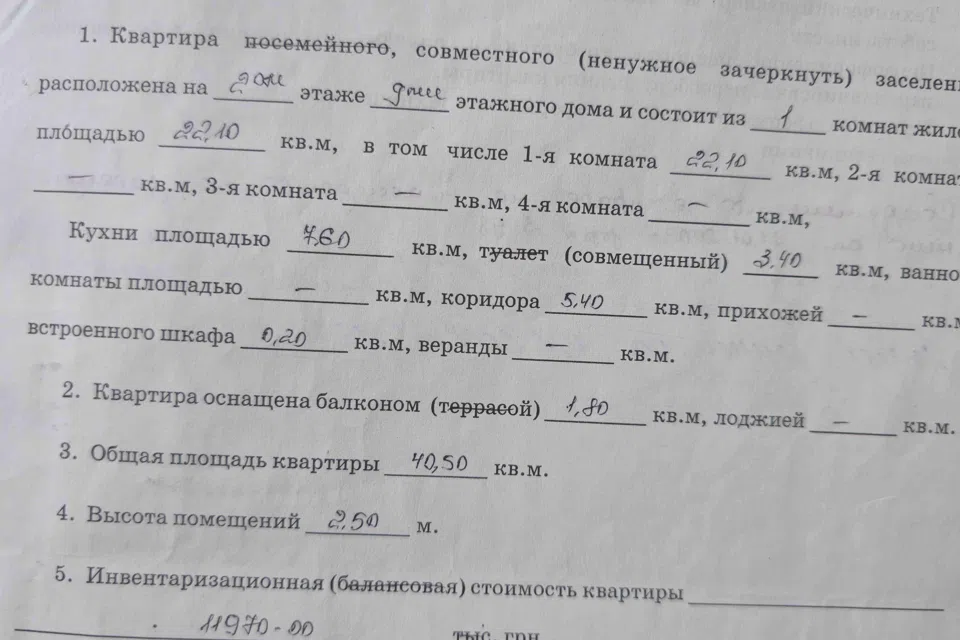 1. Квартира посемейного, совместного (ненужное зачеркнуть) заселен
расположена на 2ом этаже этажного дома и состоит из 1 комнат жило
площадью 22,10 кв.м, в том числе 1-я комната 22,10 кв.м, 2-я комнат
— кв.м, 3-я комната — кв.м, 4-я комната — кв.м,
Кухни площадью 7,60 кв.м, туалет (совмещенный) 3,40 кв.м, ванно
комнаты площадью — кв.м, коридора 5,40 кв.м, прихожей — кв.м
встроенного шкафа 0,20 кв.м, веранды — кв.м.
2. Квартира оснащена балконом (террасой) 1,80 кв.м, лоджией — кв.м.
3. Общая площадь квартиры 40,50 кв.м.
4. Высота помещений 2,50 м.
5. Инвентаризационная (балансовая) стоимость квартиры
11970-00 тыс. грн